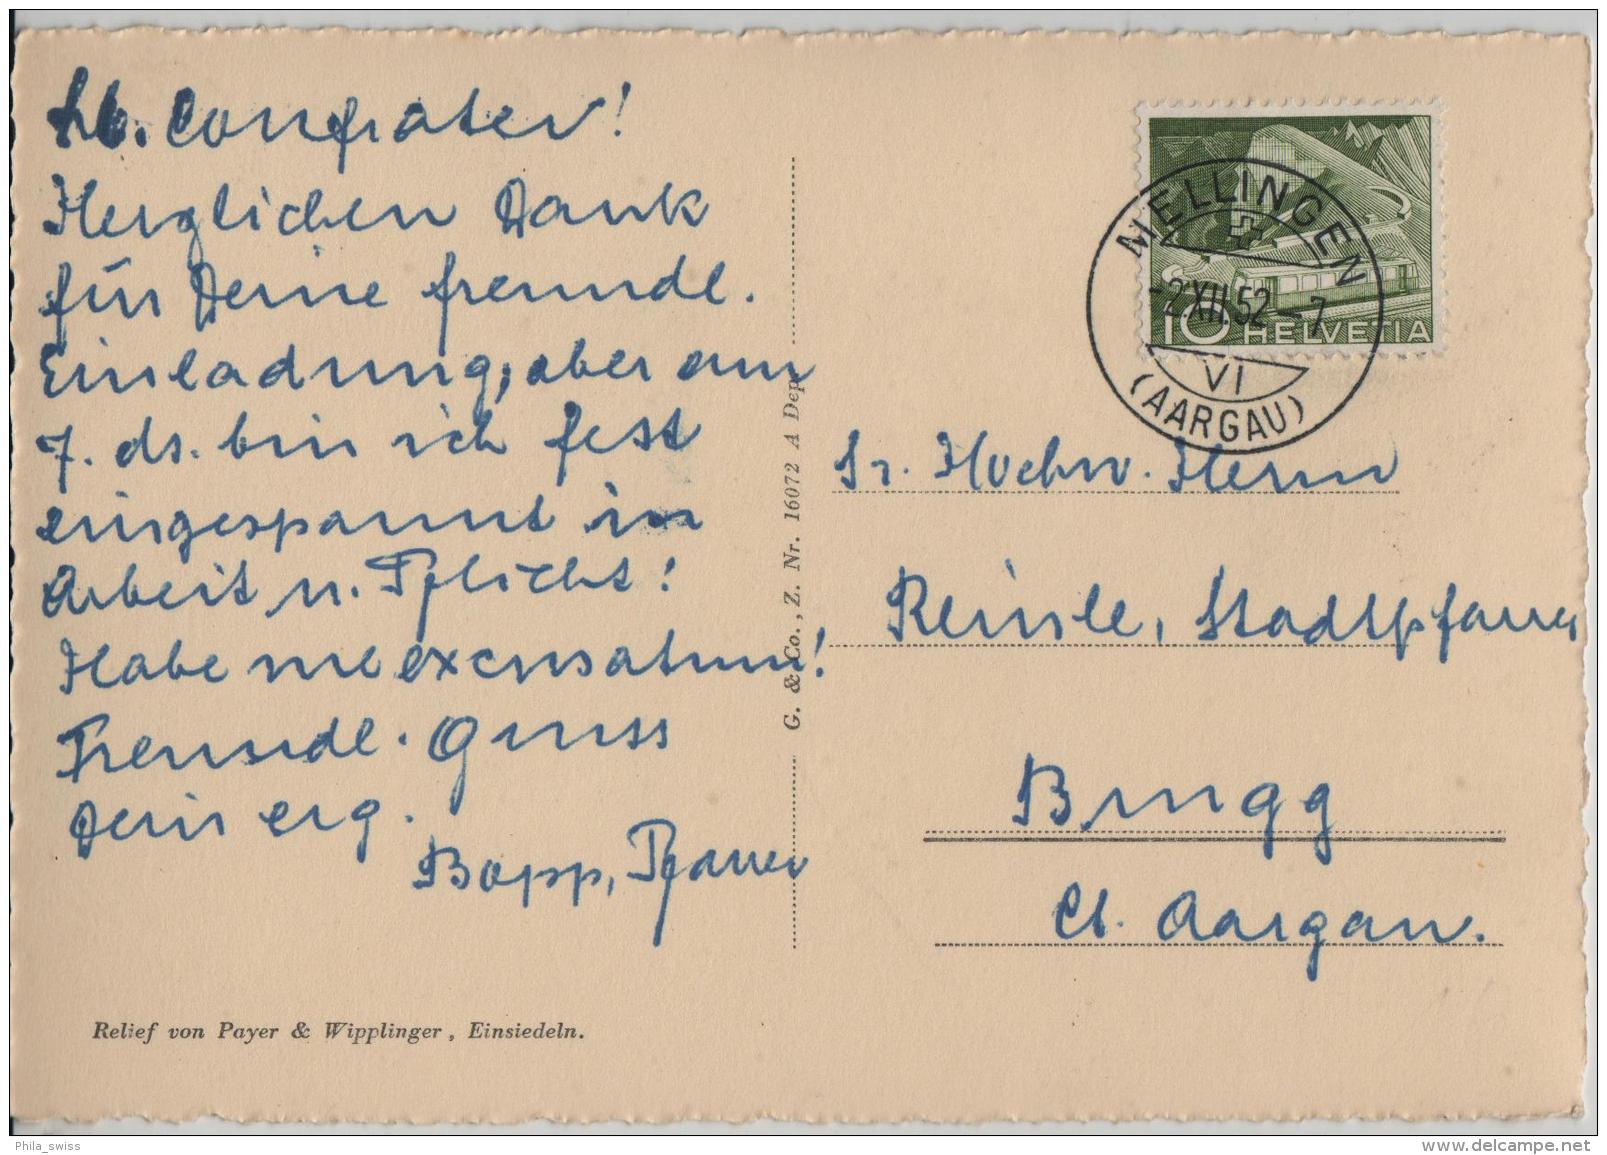 Lb. Confrater!
Herzlichen Dank
für Deine freundl.
Einladung, aber am
7. ds. bin ich fest
eingespannt in
Arbeit u. Pflicht!
Habe me excusatum!
Freundl. Gruss
Dein erg.
Bopp, Pfarrer
Relief von Payer & Wipplinger, Einsiedeln.
G. & Co., Z. Nr. 16072 A Dep.
MELLINGEN
-2.XII.52-7
VI
(AARGAU)
10 HELVETIA
Sr. Hochw. Herrn
Reinle, Stadtpfarrer
Brugg
Ct. Aargau.
Phila_swiss
www.delcampe.net